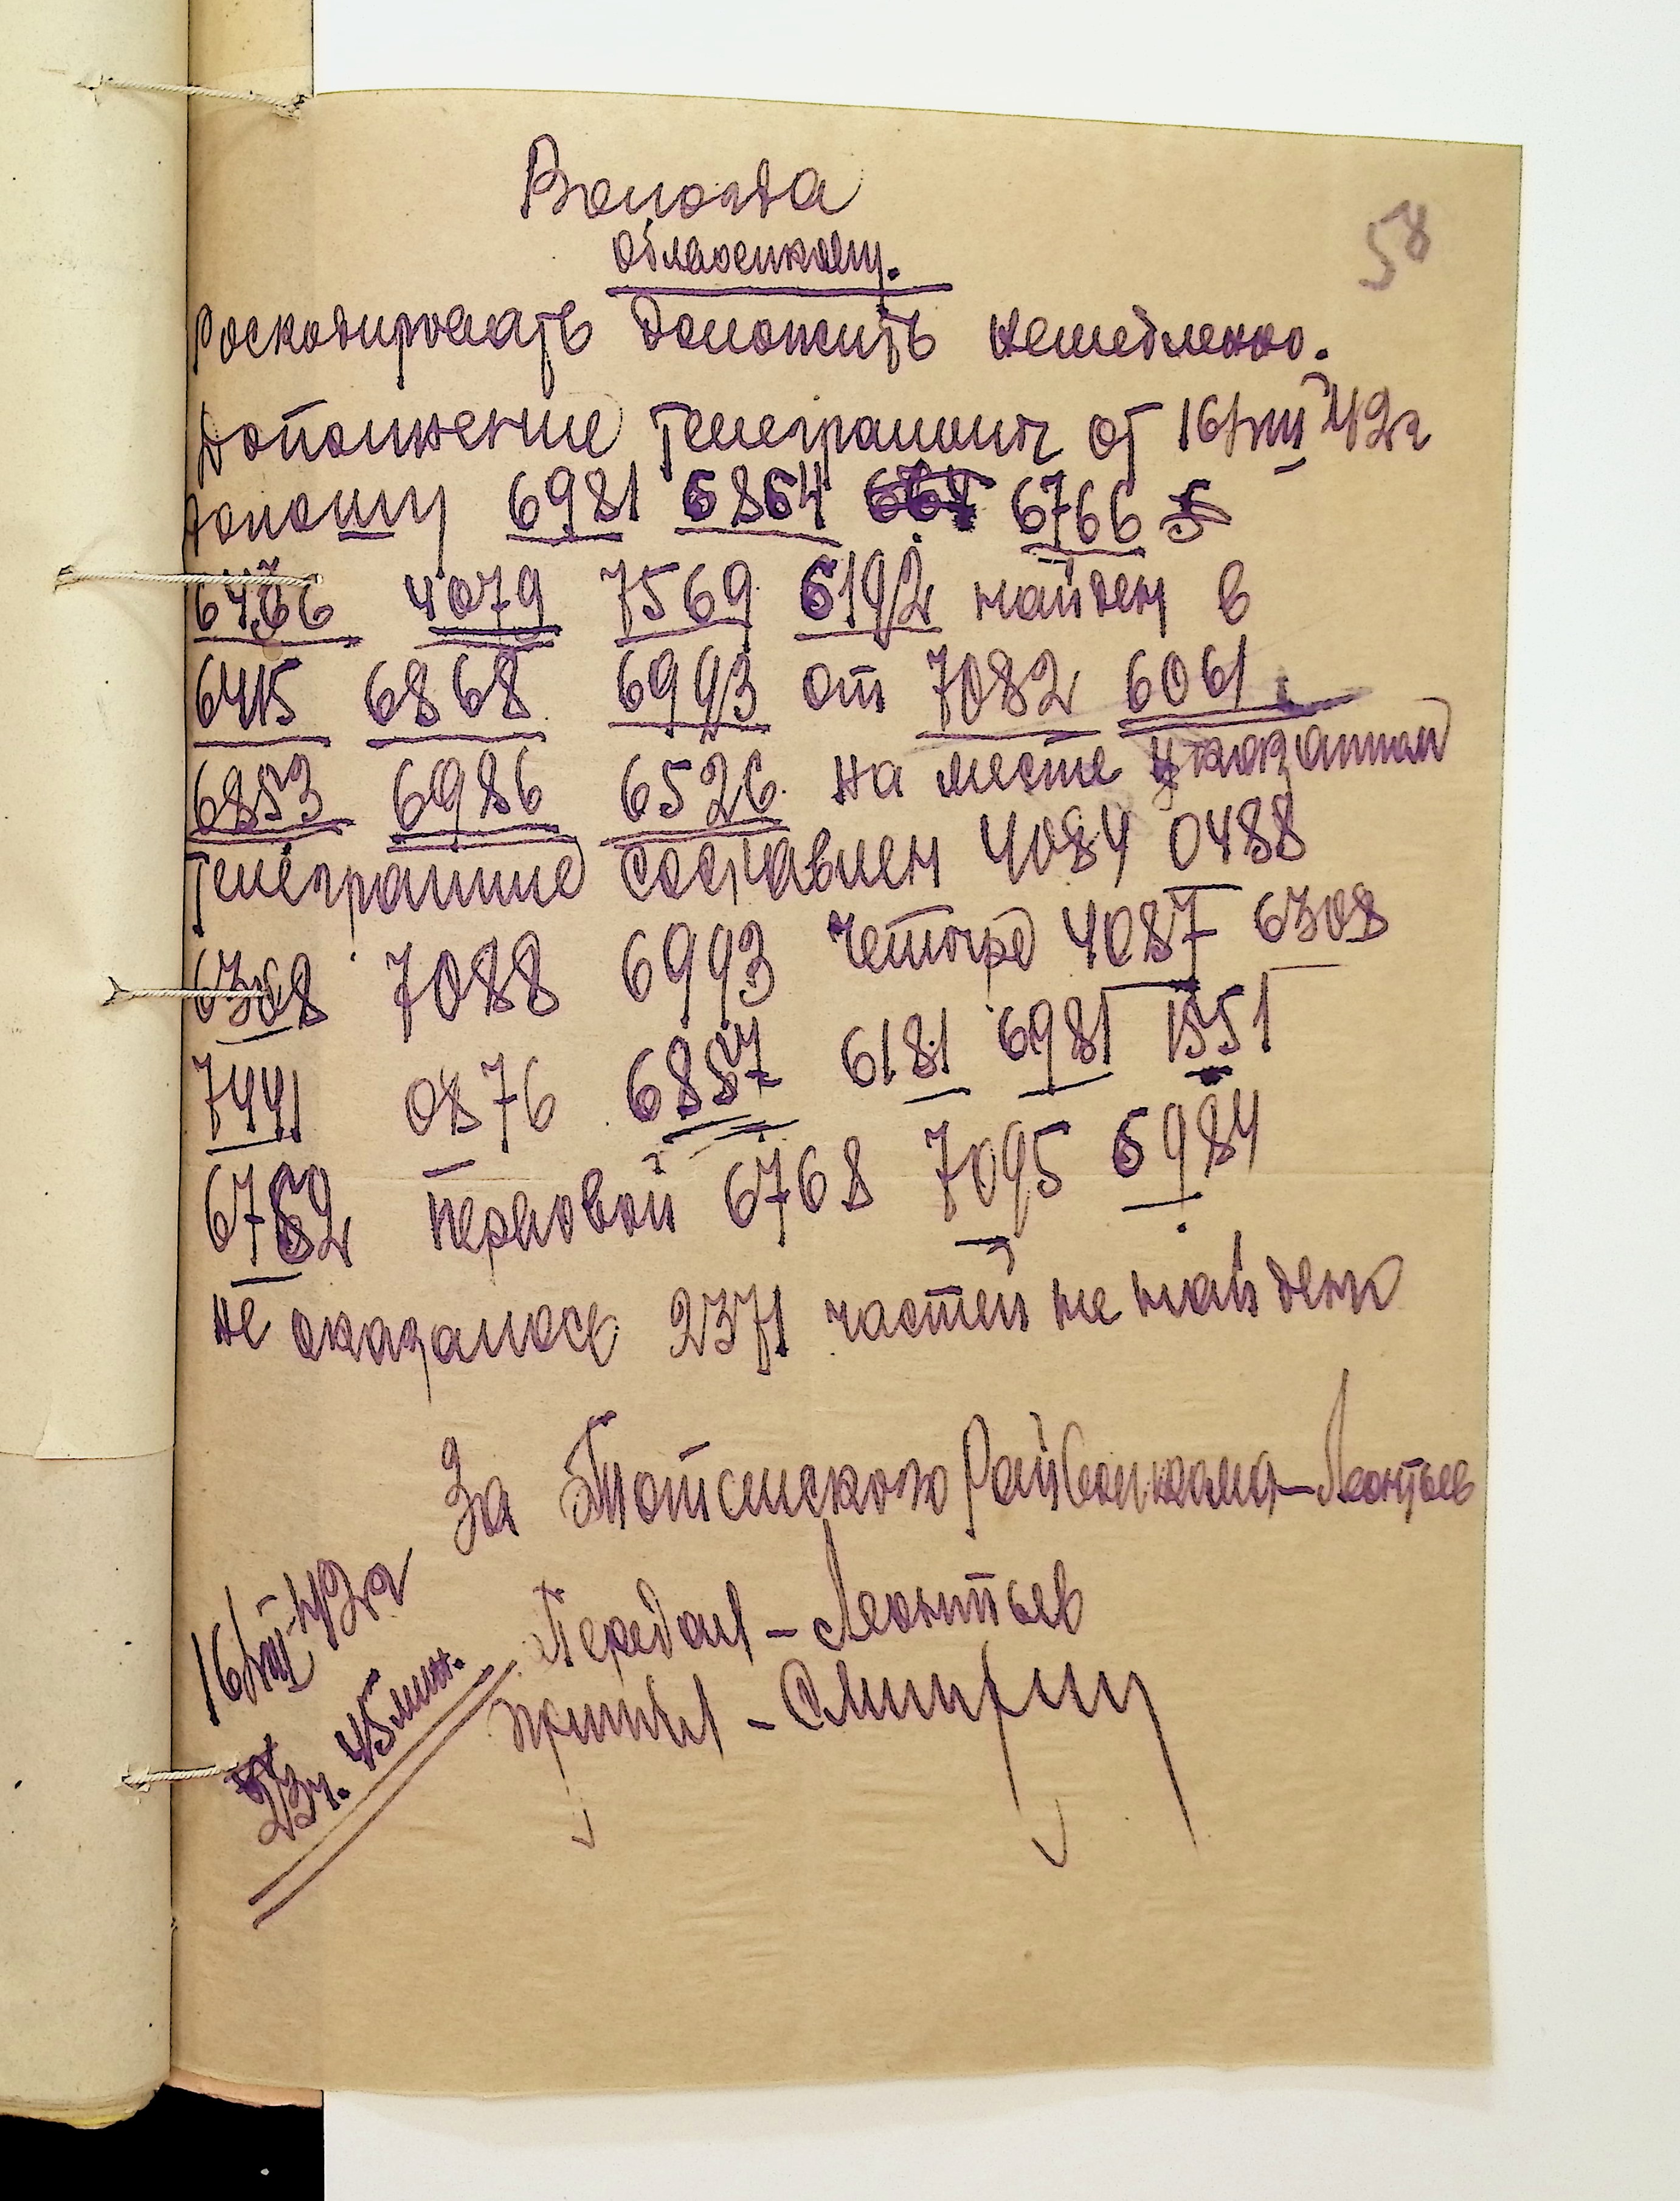 Вологда
облвоенкому.
58
Роскодировать доложить немедленно.
Дополнение телеграммы от 16/VIII 42г
доношу 6981 6864 6766
6766 4079 7569 6192 найден в
6415 6868 6993 от 7082 6061
6853 6986 6526 на месте указанном
телеграмме составлен 4084 0488
6308 7088 6993 четыре 4087 6308
7441 0876 6887 6181 6981 1551
6762 перковой 6768 7095 6984
не оказалось 2371 частей не найдено
За Тотемского Райвоенкома - Леонтьев
Передал - Леонтьев
принял -
16/VIII-42г
23ч. 45мин.